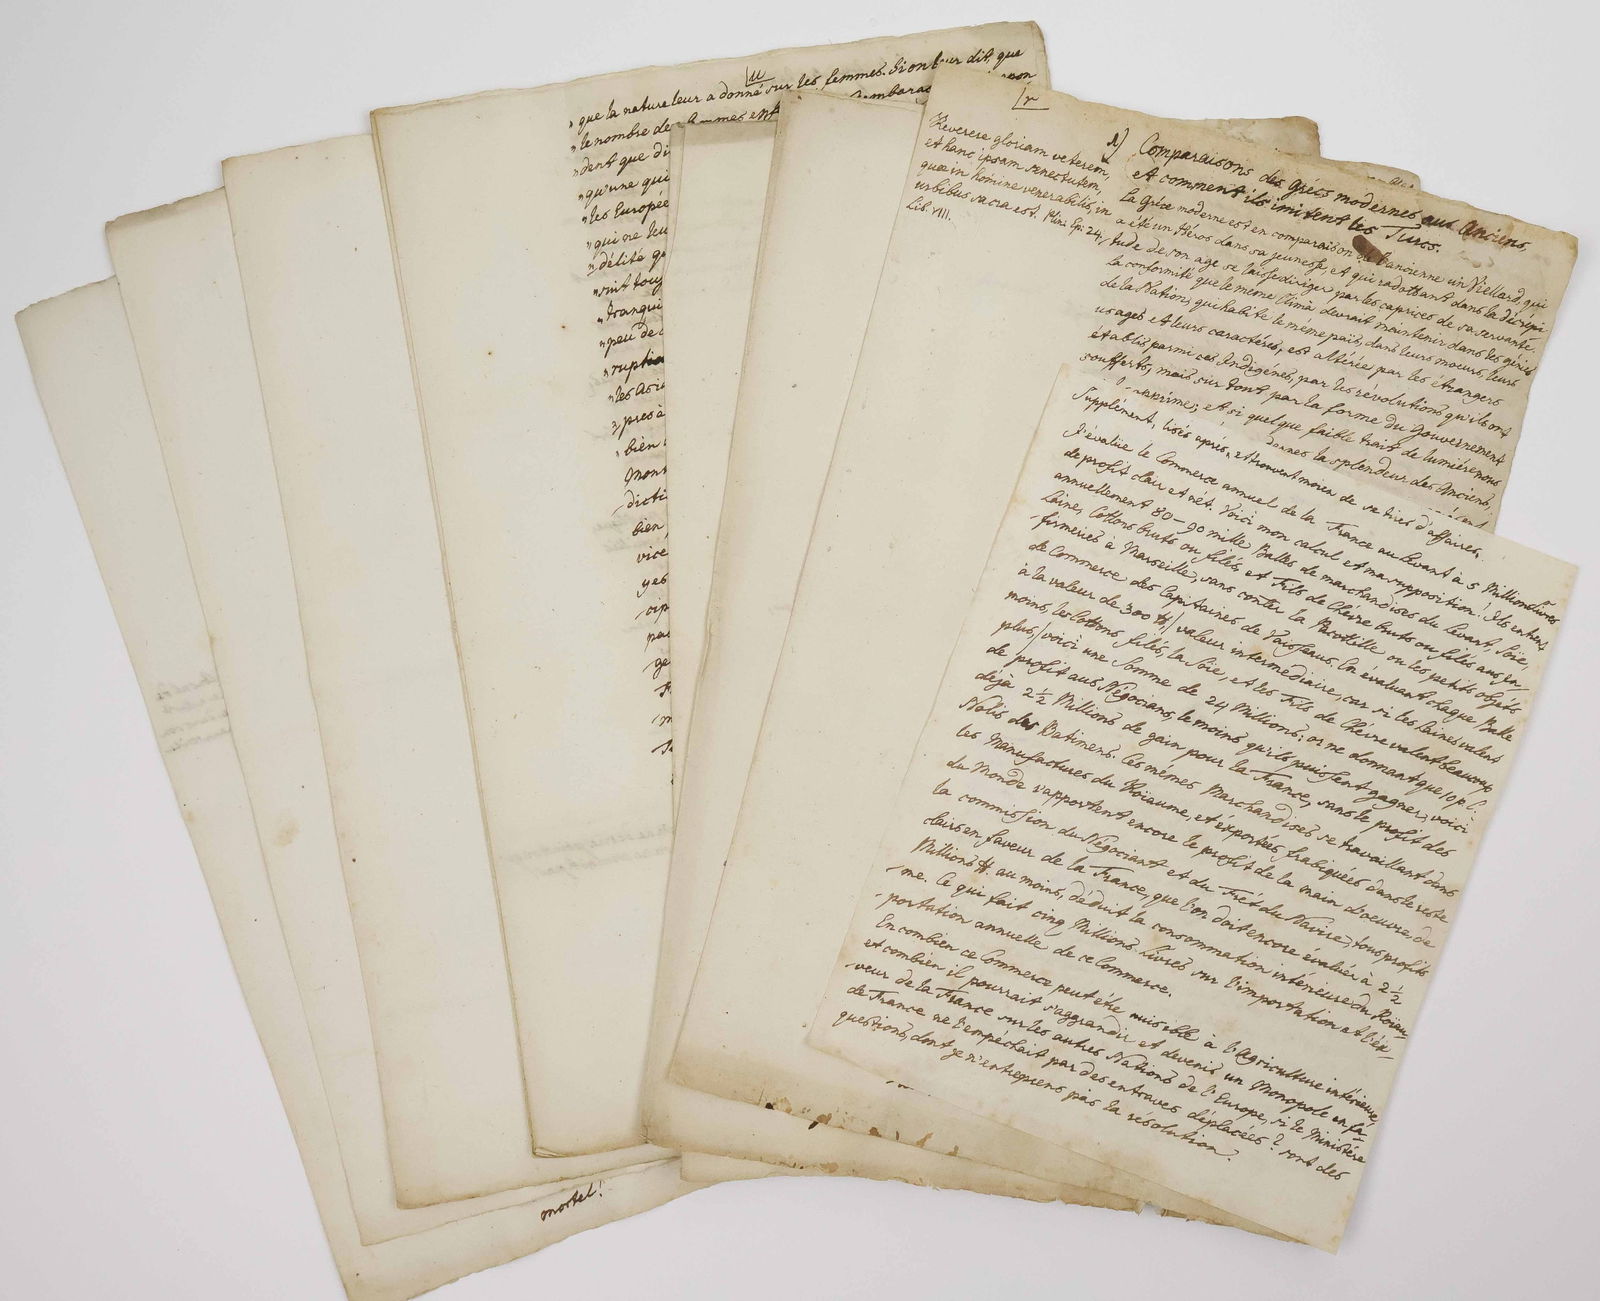 u
" que la nature leur a donné sur les femmes. Si on leur dit, que
" le nombre de
" dent que di
" qu'une qui
" les Europée
" qui ne leu
" délité qu
" soit touj
" tranqui
" peu de c
" ruption
" les Asia
" près à
" bien
mon
dicti
bien
vice
yes
cip
pa
ge
mortel!
r
Reverere gloriam veterem,
et hanc ipsam senectutem,
quæ in homine venerabilis, in
urbibus sacra est. Plin. Ep. 24.
Lib. VIII.
Comparaisons des grécs modernes aux Anciens,
et comment ils imitent les Turcs.
La Gréce moderne est en comparaison de l'ancienne un Viellard, qui
a été un Héros dans sa jeunesse, et qui radottant dans la décrépi-
tude de son age se laisse diriger par les caprices de sa servante.
La conformité que le même Climà devrait maintenir dans les génies
de la Nation, qui habite le même païs, dans leurs moeurs, leurs
usages et leurs caractéres, est altérée par les etrangers
établis parmi ces Indigénes, par les révolutions qu'ils ont
soufferts, mais sur tout par la forme du Gouvernement
opprime; et si quelque faible trait de lumiére nous
la splendeur des Anciens,
Supplément, lisés aprés, et trouvent moien de se tirer d'affaires.
J'évalüe le Commerce annuel de la France au Levant à 5 Millions Livres
de profit clair et nét. Voici mon calcul et ma supposition! Ils entrent
annuellement 80-90 mille Balles de marchandises du Levant, Soïe,
Laine, Cottons bruts ou filés, et Fils de Chévre bruts ou filés aux en-
firmeries à Marseille, sans conter la Pacotille ou les petits objéts
de Commerce des Capitaines de Vaisseaux. En évaluant chaque Balle
à la valeur de 300 ₶. / valeur intermediaire, car si les laines valent
moins, les Cottons filés, la Soïe, et les Fils de Chévre valent beaucoup
plus, / voici une Somme de 24 Millions; or ne donnant que 10 p. C.
de profit aux Négocians, le moins qu'ils puissent gagner, voici
déjà 2 ½ Millions de gain pour la France, sans le profit des
Nolis des Batimens. Ces mêmes Marchandises se travaillant dans
les Manufactures du Roïaume, et exportées frabiquées dans le reste
du Monde rapportent encore le profit de la main d'oeuvre, de
la commission du Négociant et du Frét du Navire, tous profits
clairs en faveur de la France, que l'on doit encore évaluér à 2 ½
Millions ₶. au moins, déduit la consommation intérieure du Roïau-
me. Ce qui fait cinq Millions Livres sur l'importation et l'éx-
portation annuelle de ce Commerce.
En combien ce Commerce peut être nuisible à l'Agriculture intérieure,
et combien il pourrait s'aggrandir et devenir un Monopole en fa-
veur de la France sur les autres Nations de l'Europe, si le Ministére
de France ne l'empéchait par des entraves déplacées? sont des
questions, dont je n'entreprens pas la résolution.